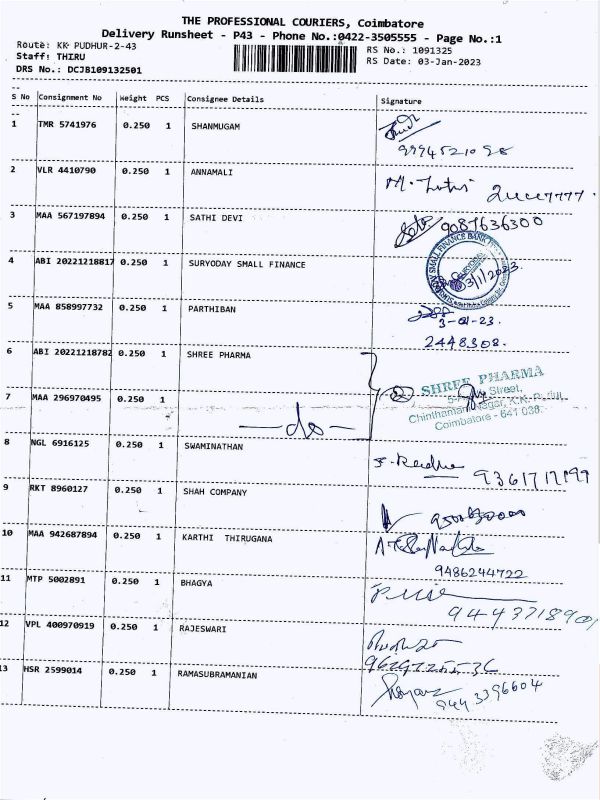 THE PROFESSIONAL COURIERS, Coimbatore
Delivery Runsheet - P43 - Phone No.:0422-3505555 - Page No.:1
Route: KK PUDHUR-2-43
RS No.: 1091325
Staff: THIRU
RS Date: 03-Jan-2023
DRS No.: DCJB109132501
S No Consignment No Weight PCS Consignee Details Signature
1 TMR 5741976 0.250 1 SHANMUGAM
2 VLR 4410790 0.250 1 ANNAMALI
3 MAA 567197894 0.250 1 SATHI DEVI 9087636300
4 ABI 20221218817 0.250 1 SURYODAY SMALL FINANCE 3/1/2023
5 MAA 858997732 0.250 1 PARTHIBAN
3-01-23.
2448308.
6 ABI 20221218782 0.250 1 SHREE PHARMA
SHREE PHARMA
Street,
7 MAA 296970495 1
Coimbatore - 641 038.
—do—
8 NGL 6916125 0.250 1 SWAMINATHAN
9 RKT 8960127 0.250 1 SHAH COMPANY
10 MAA 942687894 0.250 1 KARTHI THIRUGANA
9486244722
11 MTP 5002891 0.250 1 BHAGYA
12 VPL 400970919 0.250 1 RAJESWARI
13 HSR 2599014 0.250 1 RAMASUBRAMANIAN
944 3396604